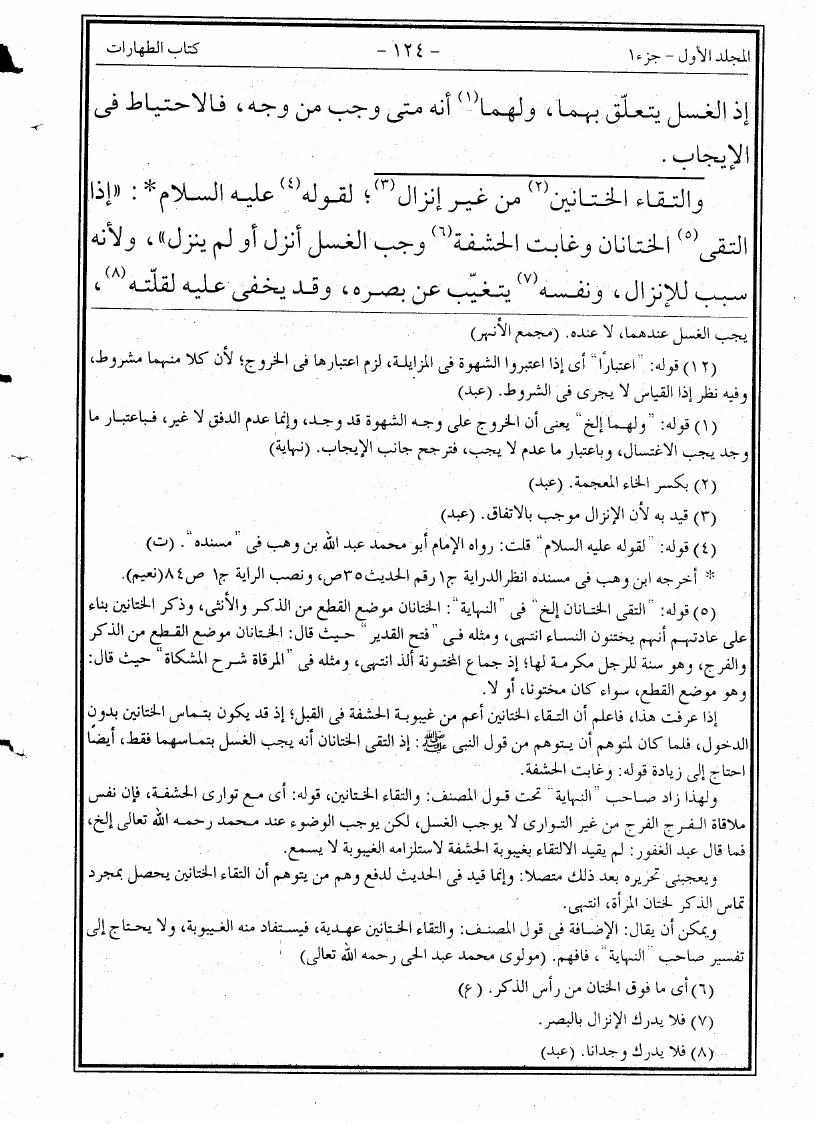 المجلد الأول - جزء ١ - ١٢٤ - كتاب الطهارات
إذ الغسل يتعلّق بهما، ولهما(١) أنه متى وجب من وجه، فالاحتياط فى
الإيجاب.
والتقاء الختانين(٢) من غير إنزال(٣)؛ لقوله(٤) عليه السلام*: «إذا
التقى(٥) الختانان وغابت الحشفة(٦) وجب الغسل أنزل أو لم ينزل»، ولأنه
سبب للإنزال، ونفسه(٧) يتغيّب عن بصره، وقد يخفى عليه لقلّته(٨)،
يجب الغسل عندهما، لا عنده. (مجمع الأنهر)
(١٢) قوله: "اعتبارًا" أى إذا اعتبروا الشهوة فى المزايلة، لزم اعتبارها فى الخروج؛ لأن كلا منهما مشروط،
وفيه نظر إذا القياس لا يجرى فى الشروط. (عبد)
(١) قوله: "ولهما إلخ" يعنى أن الخروج على وجه الشهوة قد وجد، وإنما عدم الدفق لا غير، فباعتبار ما
وجد يجب الاغتسال، وباعتبار ما عدم لا يجب، فترجح جانب الإيجاب. (نهاية)
(٢) بكسر الخاء المعجمة. (عبد)
(٣) قيد به لأن الإنزال موجب بالاتفاق. (عبد)
(٤) قوله: "لقوله عليه السلام" قلت: رواه الإمام أبو محمد عبد الله بن وهب فى "مسنده". (ت)
* أخرجه ابن وهب فى مسنده انظر الدراية ج١ رقم الحديث٣٥ص، ونصب الراية ج١ ص٨٤(نعيم).
(٥) قوله: "التقى الختانان إلخ" فى "النهاية": الختانان موضع القطع من الذكر والأنثى، وذكر الختانين بناء
على عادتهم أنهم يختنون النساء انتهى، ومثله فى "فتح القدير" حيث قال: الختانان موضع القطع من الذكر
والفرج، وهو سنة للرجل مكرمة لها؛ إذ جماع المختونة ألذ انتهى، ومثله فى "المرقاة شرح المشكاة" حيث قال:
وهو موضع القطع، سواء كان مختونا، أو لا.
إذا عرفت هذا، فاعلم أن التقاء الختانين أعم من غيبوبة الحشفة فى القبل؛ إذ قد يكون بتماس الختانين بدون
الدخول، فلما كان لمتوهم أن يتوهم من قول النبى ﷺ: إذ التقى الختانان أنه يجب الغسل بتماسهما فقط، أيضًا
احتاج إلى زيادة قوله: وغابت الحشفة.
ولهذا زاد صاحب "النهاية" تحت قول المصنف: والتقاء الختانين، قوله: أى مع توارى الحشفة، فإن نفس
ملاقاة الفرج الفرج من غير التوارى لا يوجب الغسل، لكن يوجب الوضوء عند محمد رحمه الله تعالى إلخ،
فما قال عبد الغفور: لم يقيد الالتقاء بغيبوبة الحشفة لاستلزامه الغيبوبة لا يسمع.
ويعجبنى تحريره بعد ذلك متصلا: وإنما قيد فى الحديث لدفع وهم من يتوهم أن التقاء الختانين يحصل بمجرد
تماس الذكر لختان المرأة، انتهى.
ويمكن أن يقال: الإضافة فى قول المصنف: والتقاء الختانين عهدية، فيستفاد منه الغيبوبة، ولا يحتاج إلى
تفسير صاحب "النهاية"، فافهم. (مولوى محمد عبد الحى رحمه الله تعالى)
(٦) أى ما فوق الختان من رأس الذكر. (ع)
(٧) فلا يدرك الإنزال بالبصر.
(٨) فلا يدرك وجدانا. (عبد)